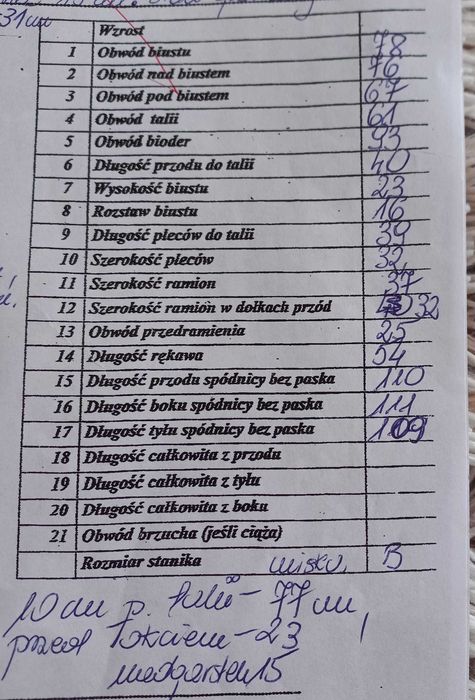 31 cm
Wzrost
1 Obwód biustu 78
2 Obwód nad biustem 76
3 Obwód pod biustem 67
4 Obwód talii 61
5 Obwód bioder 93
6 Długość przodu do talii 40
7 Wysokość biustu 23
8 Rozstaw biustu 16
9 Długość pleców do talii 39
10 Szerokość pleców 32
11 Szerokość ramion 37
12 Szerokość ramion w dołkach przód 32
13 Obwód przedramienia 25
14 Długość rękawa 54
15 Długość przodu spódnicy bez paska 110
16 Długość boku spódnicy bez paska 111
17 Długość tyłu spódnicy bez paska 109
18 Długość całkowita z przodu
19 Długość całkowita z tyłu
20 Długość całkowita z boku
21 Obwód brzucha (jeśli ciąża)
Rozmiar stanika miska B
10 cm p. talii - 77 cm,
przed łokciem - 23
nadgarstek 15